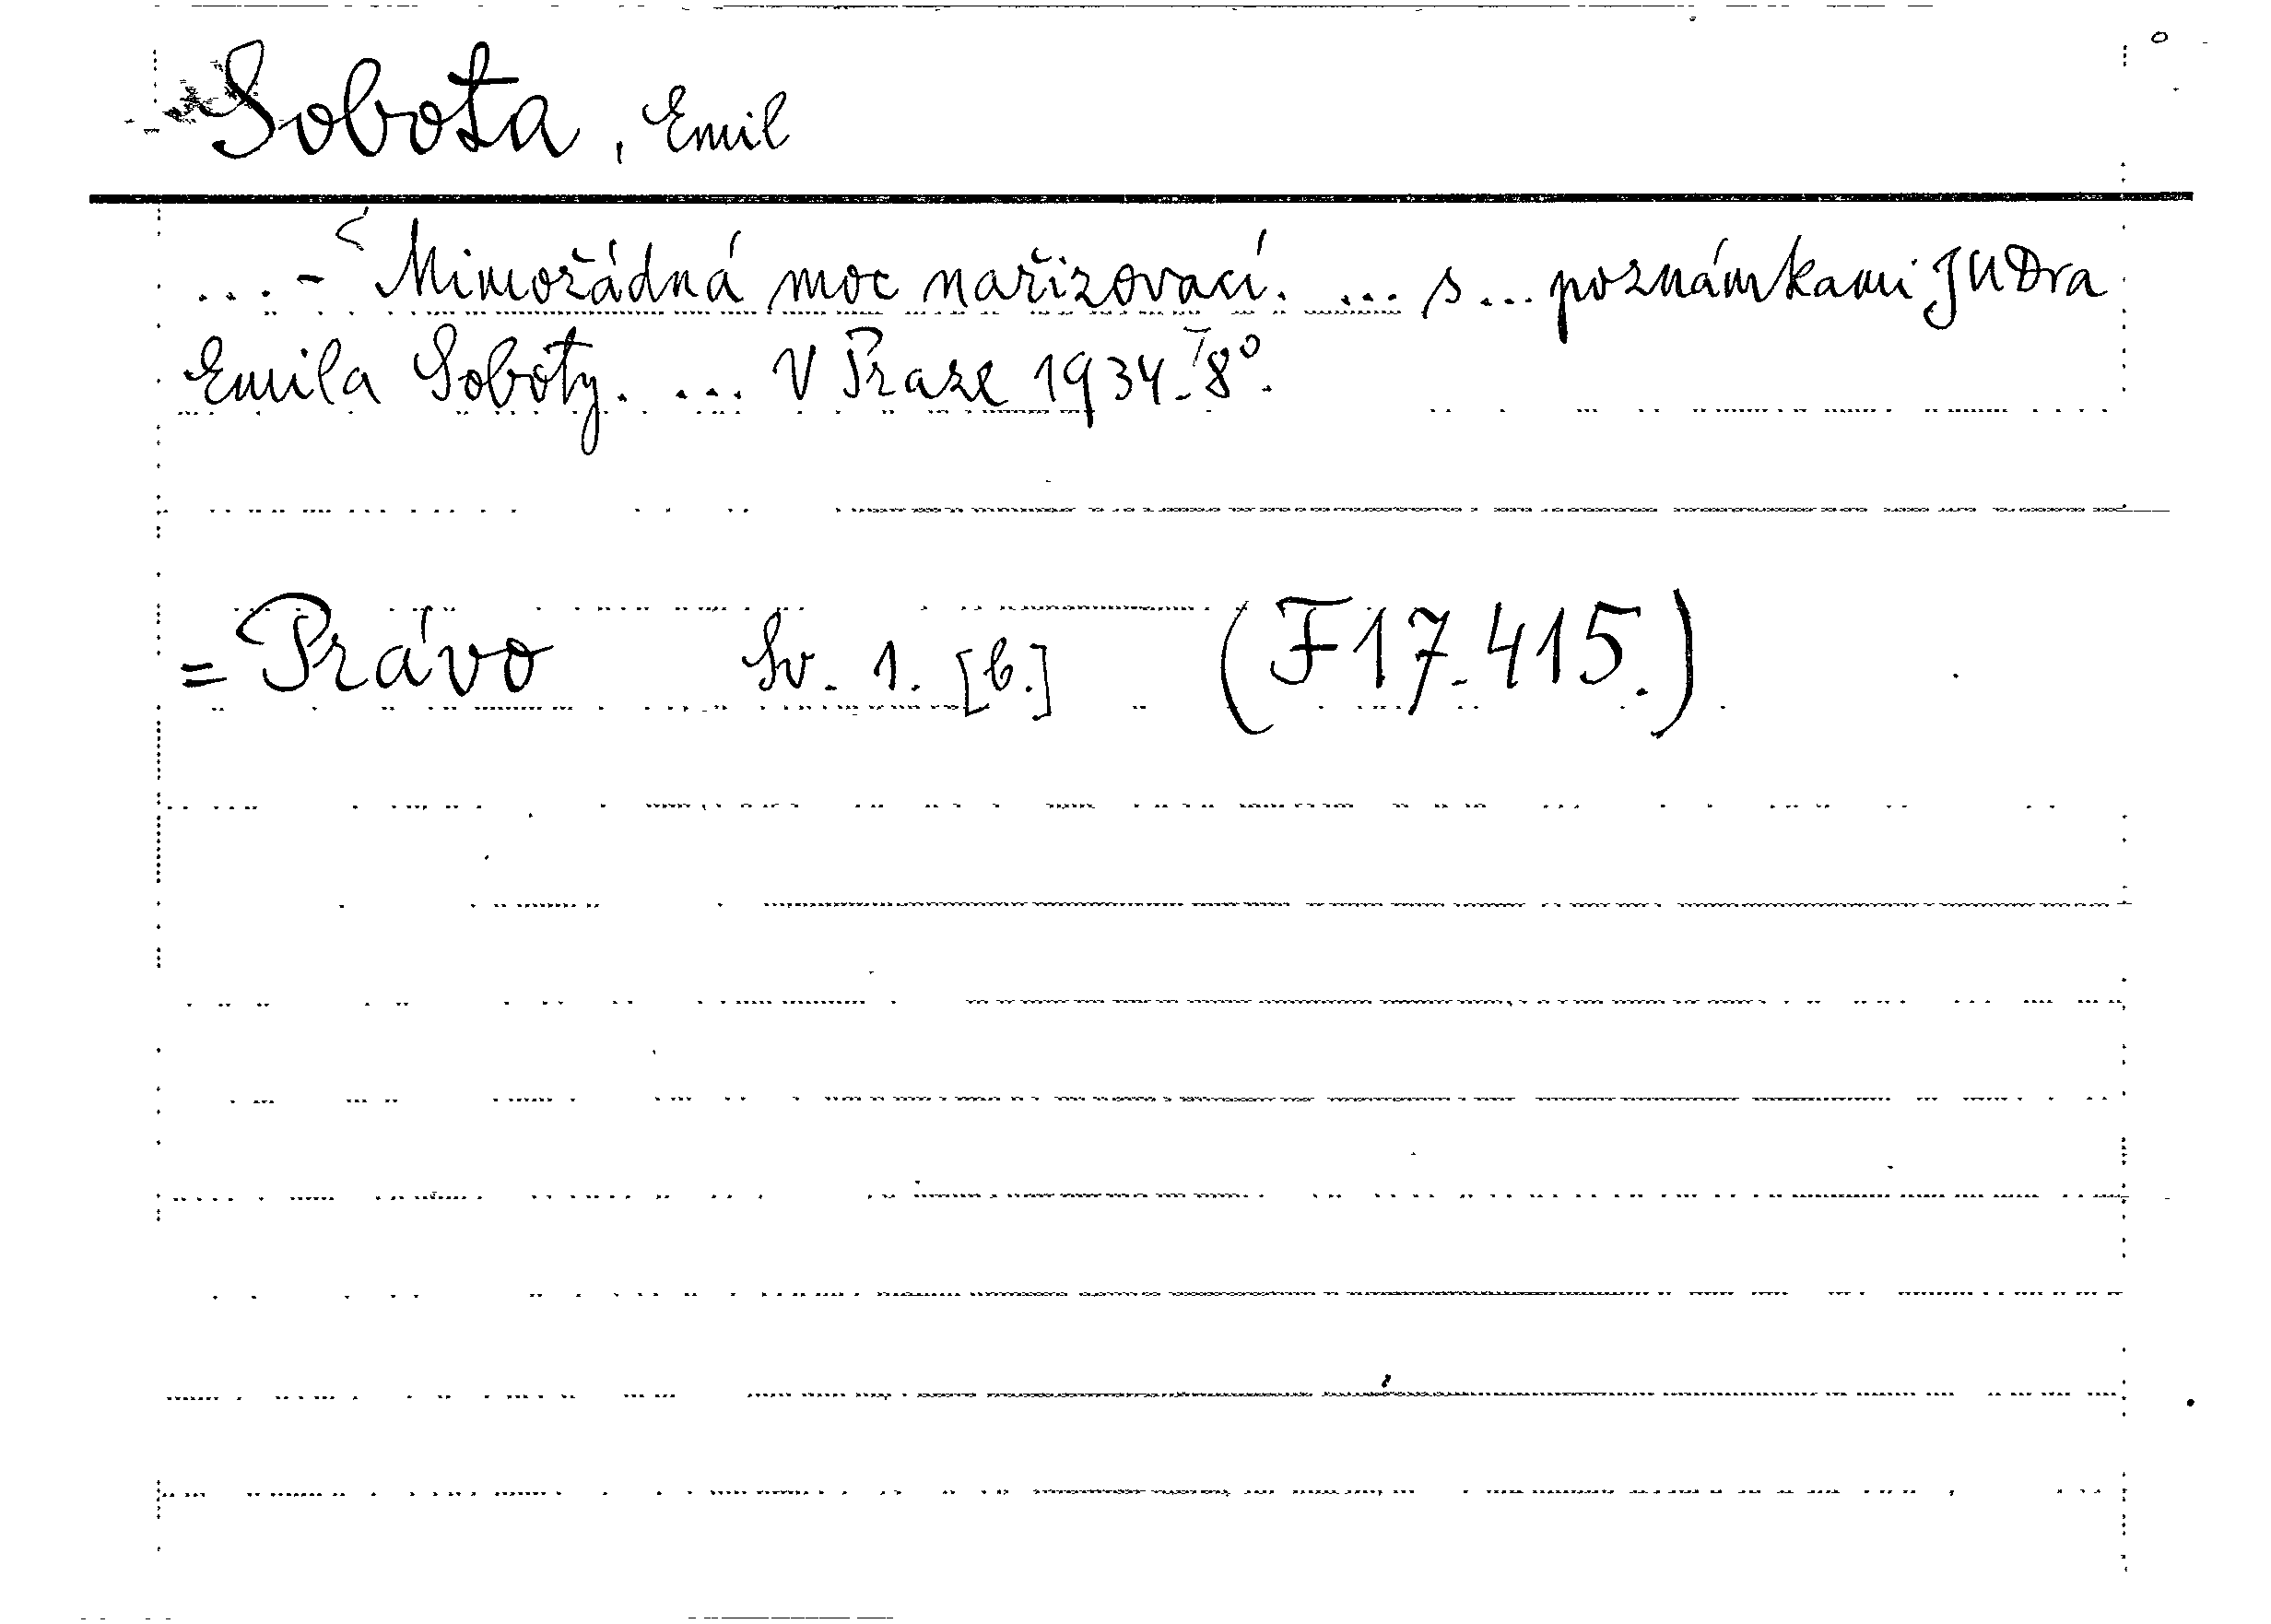 Sobota, Emil
... - Mimořádná moc nařizovací. ... s... poznámkami JUDra
Emila Soboty. ... V Praze 1934. 8°.
= Právo Sv. 1. [b.] (F 17.415.)